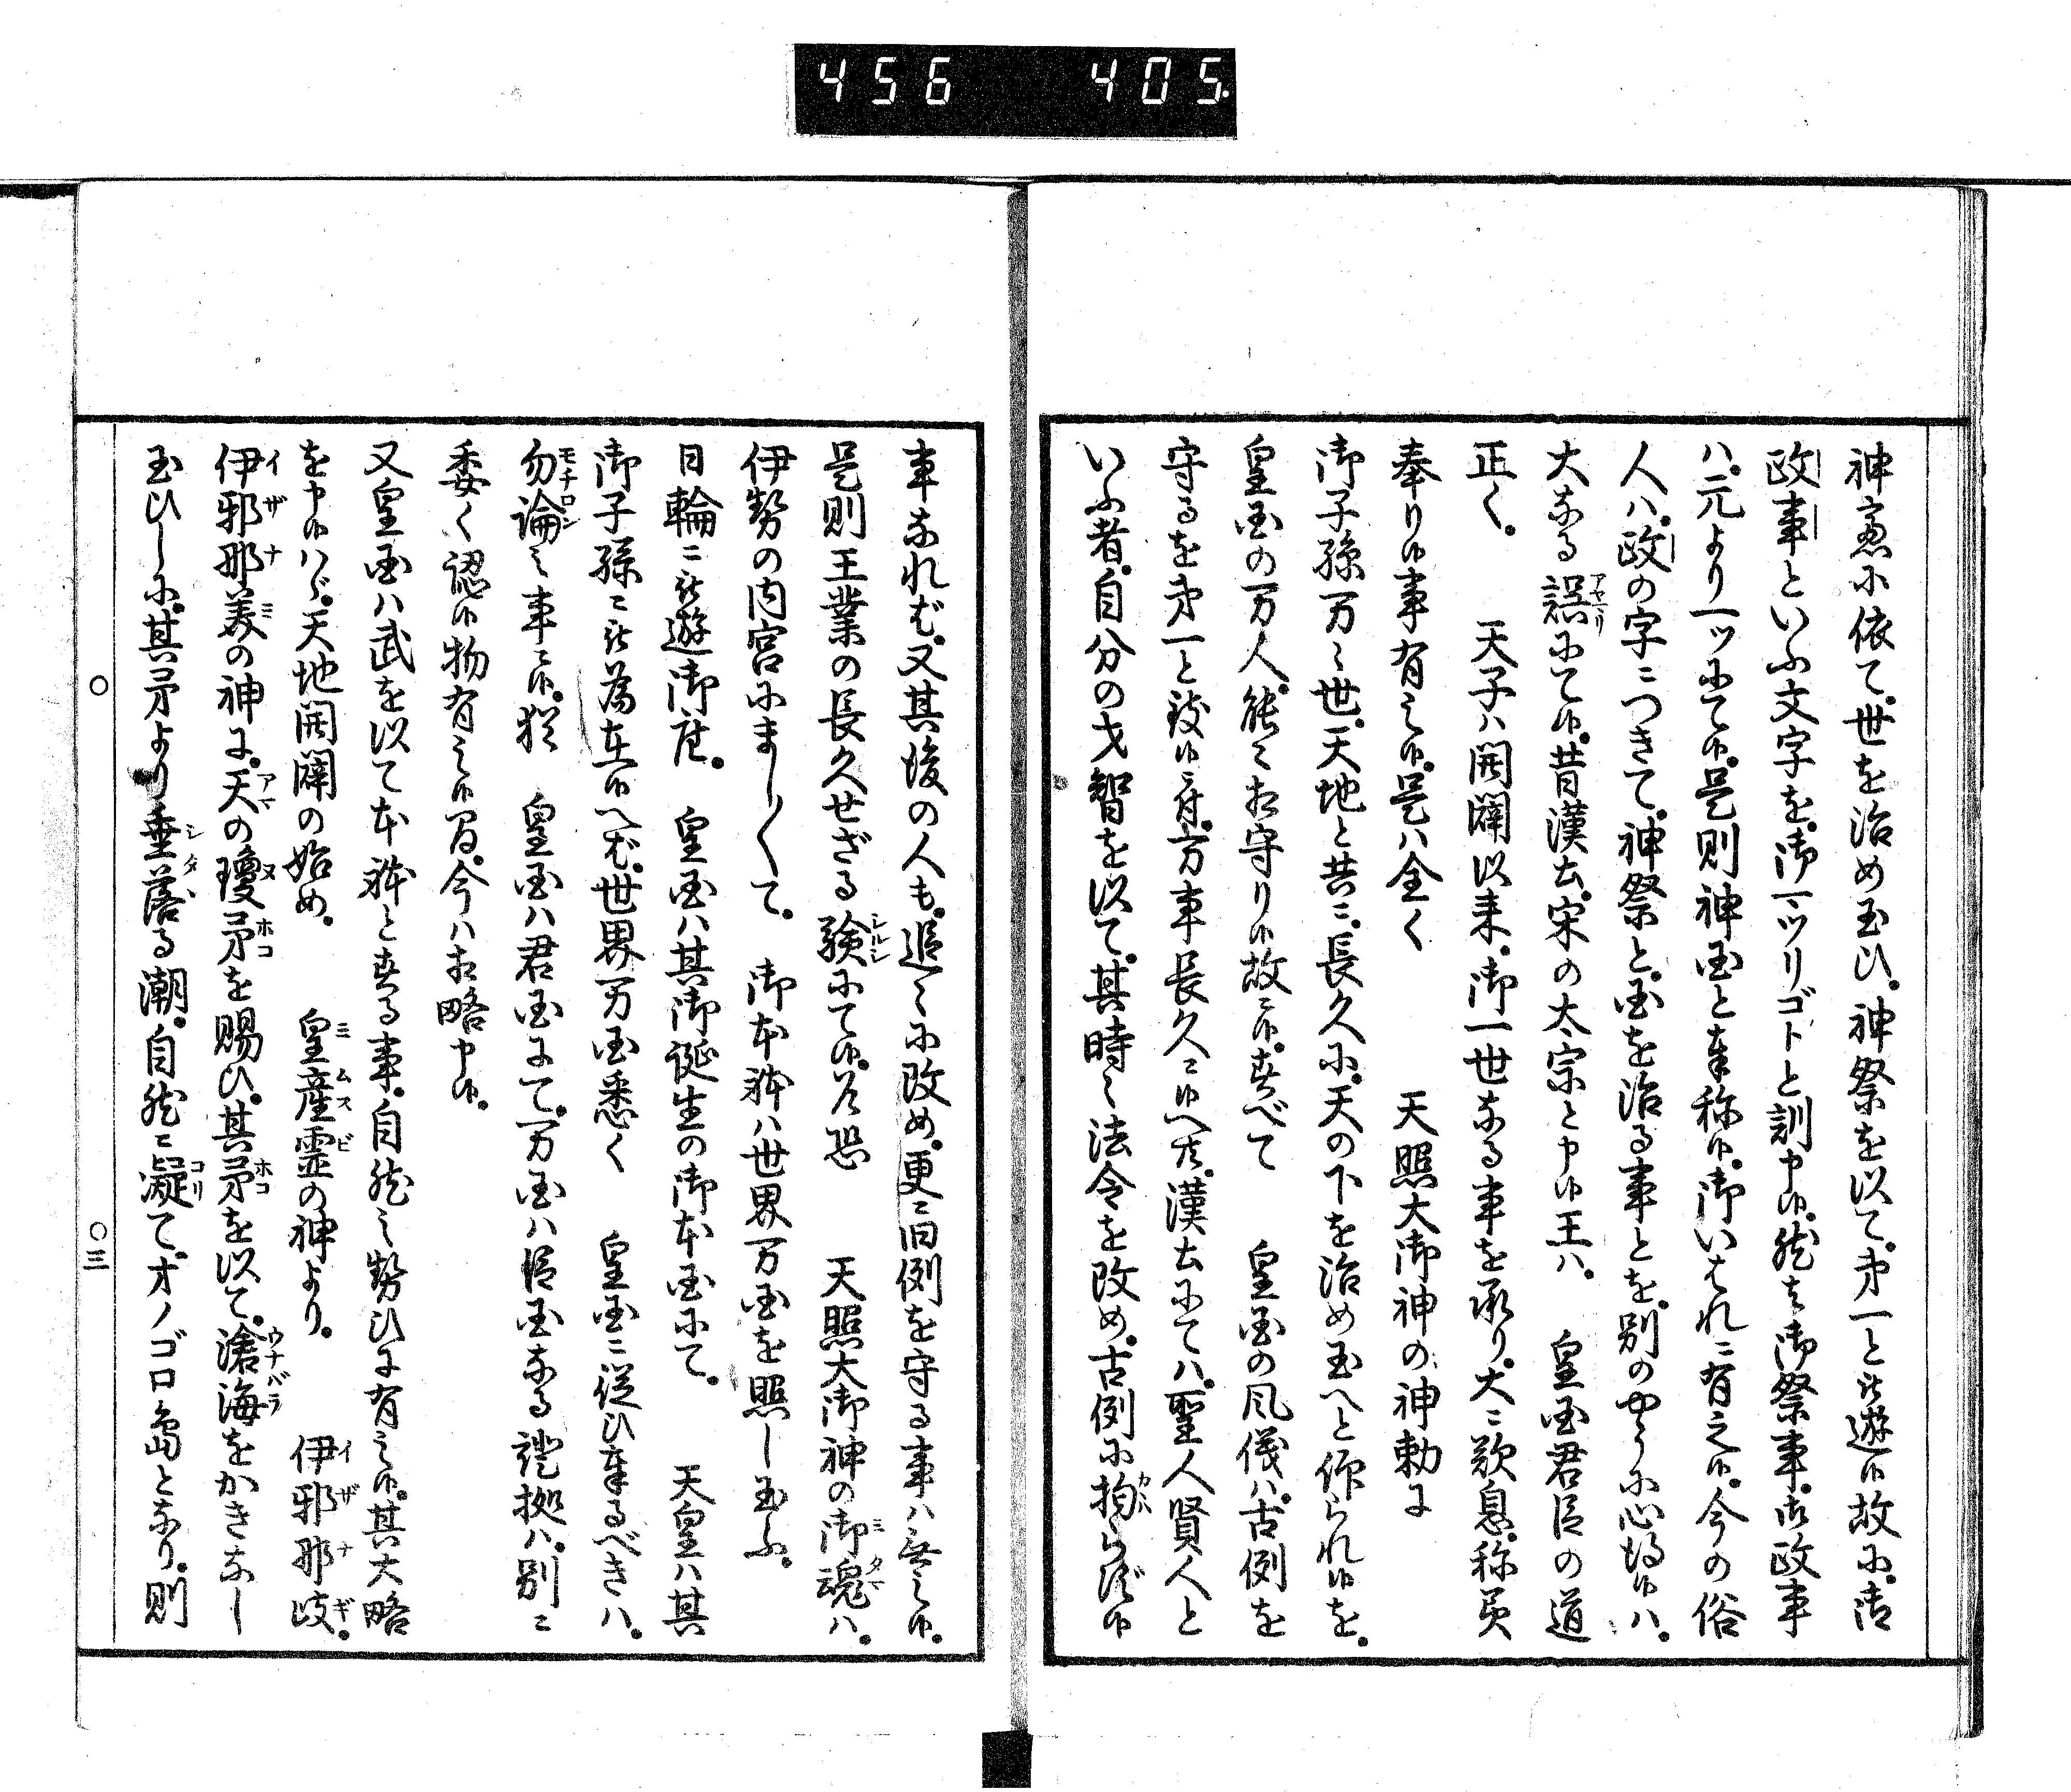 456 405.
神慮に依て。世を治め玉ひ。神祭を以て。第一と被遊候故に。御
政事といふ文字を。御マツリゴトと訓申候。然は御祭事。御政事
ハ。元より一ツにて候。是則神国と奉称候。御いはれに有之候。今の俗
人ハ。政の字につきて。神祭と。国を治る事とを。別のやうに心得候ハ。
大なる誤にて候。昔漢土。宋の太宗と申候王ハ。 皇国君臣の道
正く。 天子ハ開闢以来。御一世なる事を承り。大に歎息。称美
奉り候事有之候。是ハ全く 天照大御神の神勅に
御子孫万々世。天地と共に。長久に。天の下を治め玉へと仰られ候を。
皇国の万人。能々相守り候故に候。すべて 皇国の風儀ハ。古例を
守るを第一と致候ニ付。万事長久に候へ共。漢土にてハ。聖人賢人と
いふ者。自分の才智を以て。其時々法令を改め。古例に拘らず候
事なれば。又其後の人も。追々に改め。更に旧例を守る事ハ無之候。
是則王業の長久せざる験にて候。乍恐 天照大御神の御魂ハ。
伊勢の内宮にましまして。 御本体ハ世界万国を照し玉ふ。
日輪に被遊御座。 皇国ハ其御誕生の御本国にて。 天皇ハ其
御子孫に被為在候へば。世界万国悉く 皇国に従ひ奉るべきハ。
勿論之事に候。猶 皇国ハ君国にて。万国ハ臣国なる證拠ハ。別に
委く認候物有之候間。今ハ相略申候。
又皇国ハ武を以て本体とする事。自然之勢ひに有之候。其大略
を申候ハゞ。天地開闢の始め。 皇産霊の神より。 伊邪那岐。
伊邪那美の神に。天の瓊矛を賜ひ。其矛を以て。滄海をかきなし
玉ひしに。其矛より垂落る潮。自然に凝て。オノゴロ島となり。則
○ ○三